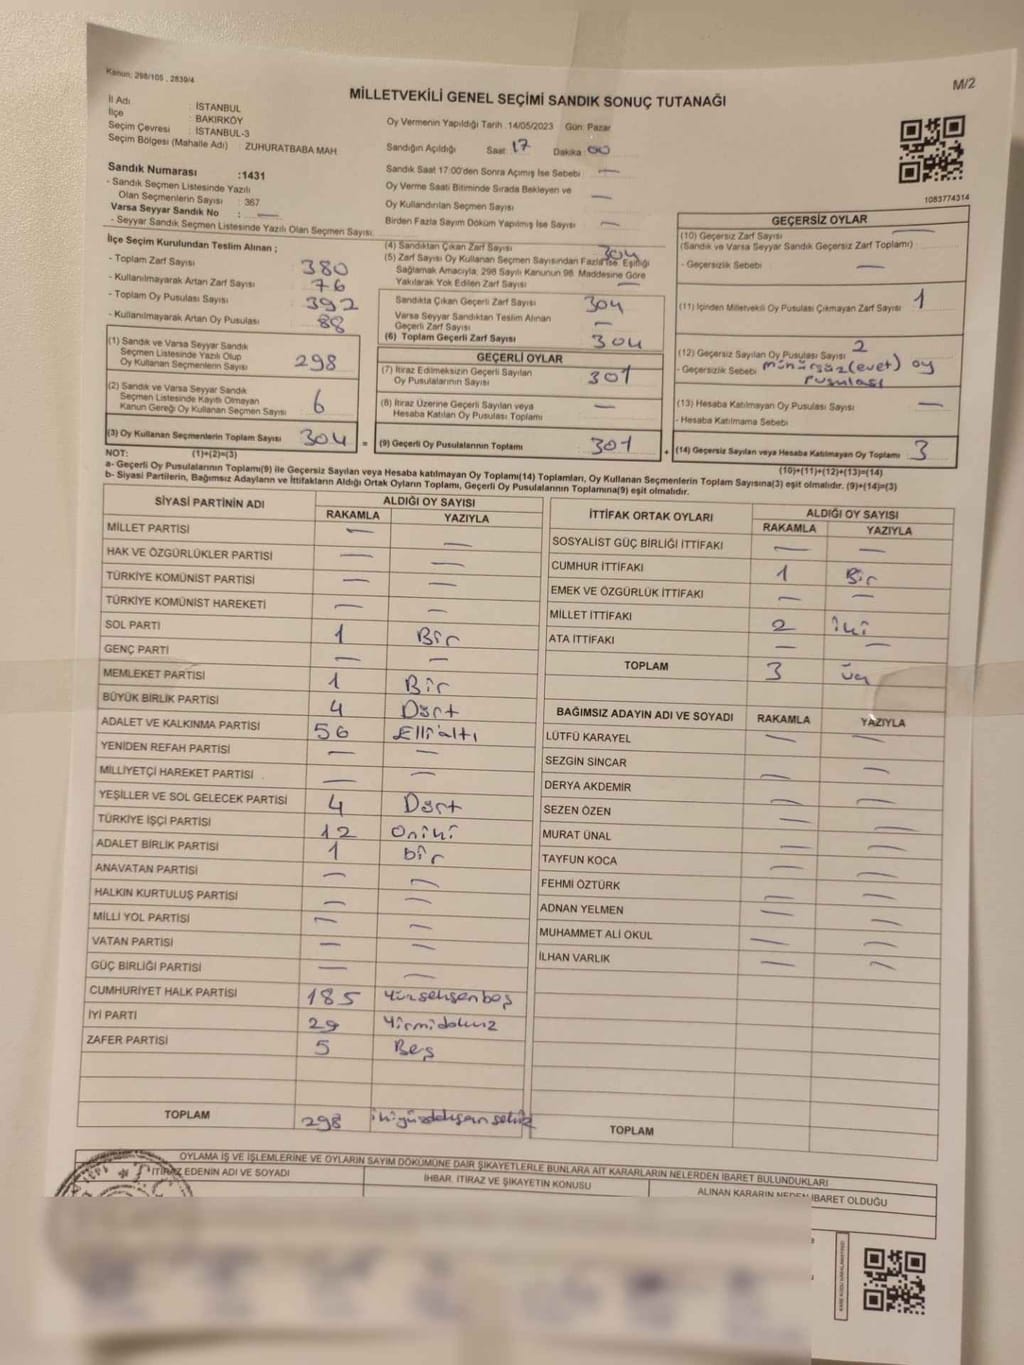 Kanun; 298/105 , 2839/4
M/2
MİLLETVEKİLİ GENEL SEÇİMİ SANDIK SONUÇ TUTANAĞI
İl Adı : İSTANBUL
İlçe : BAKIRKÖY
Seçim Çevresi : İSTANBUL-3
Seçim Bölgesi (Mahalle Adı) : ZUHURATBABA MAH
Sandık Numarası :1431
- Sandık Seçmen Listesinde Yazılı
Olan Seçmenlerin Sayısı : 367
Varsa Seyyar Sandık No : —
- Seyyar Sandık Seçmen Listesinde Yazılı Olan Seçmen Sayısı
Oy Vermenin Yapıldığı Tarih :14/05/2023 Gün: Pazar
Sandığın Açıldığı Saat 17 Dakika 00
Sandık Saat 17:00'den Sonra Açımış İse Sebebi —
Oy Verme Saati Bitiminde Sırada Bekleyen ve
Oy Kullandırılan Seçmen Sayısı —
Birden Fazla Sayım Döküm Yapılmış İse Sayısı —
1083774314
İlçe Seçim Kurulundan Teslim Alınan ;
- Toplam Zarf Sayısı 380
- Kullanılmayarak Artan Zarf Sayısı 76
- Toplam Oy Pusulası Sayısı 392
- Kullanılmayarak Artan Oy Pusulası 88
(1) Sandık ve Varsa Seyyar Sandık
Seçmen Listesinde Yazılı Olup
Oy Kullanan Seçmenlerin Sayısı 298
(2) Sandık ve Varsa Seyyar Sandık
Seçmen Listesinde Kayıtlı Olmayan
Kanun Gereği Oy Kullanan Seçmen Sayısı 6
(3) Oy Kullanan Seçmenlerin Toplam Sayısı 304 =
(4) Sandıktan Çıkan Zarf Sayısı 304
(5) Zarf Sayısı Oy Kullanan Seçmen Sayısından Fazla ise, Eşitliği
Sağlamak Amacıyla, 298 Sayılı Kanunun 98. Maddesine Göre
Yakılarak Yok Edilen Zarf Sayısı —
Sandıkta Çıkan Geçerli Zarf Sayısı 304
Varsa Seyyar Sandıktan Teslim Alınan
Geçerli Zarf Sayısı —
(6) Toplam Geçerli Zarf Sayısı 304
GEÇERLİ OYLAR
(7) İtiraz Edilmeksizin Geçerli Sayılan
Oy Pusulalarının Sayısı 301
(8) İtiraz Üzerine Geçerli Sayılan veya
Hesaba Katılan Oy Pusulası Toplamı —
(9) Geçerli Oy Pusulalarının Toplamı 301 +
GEÇERSİZ OYLAR
(10) Geçersiz Zarf Sayısı —
(Sandık ve Varsa Seyyar Sandık Geçersiz Zarf Toplamı)
- Geçersizlik Sebebi —
(11) İçinden Milletvekili Oy Pusulası Çıkmayan Zarf Sayısı 1
(12) Geçersiz Sayılan Oy Pusulası Sayısı 2
- Geçersizlik Sebebi mühürsüz (evet) oy
pusulası
(13) Hesaba Katılmayan Oy Pusulası Sayısı —
- Hesaba Katılmama Sebebi
(14) Geçersiz Sayılan veya Hesaba Katılmayan Oy Toplamı 3
NOT: (1)+(2)=(3)
(10)+(11)+(12)+(13)=(14)
a- Geçerli Oy Pusulalarının Toplamı(9) ile Geçersiz Sayılan veya Hesaba katılmayan Oy Toplamı(14) Toplamları, Oy Kullanan Seçmenlerin Toplam Sayısına(3) eşit olmalıdır. (9)+(14)=(3)
b- Siyasi Partilerin, Bağımsız Adayların ve İttifakların Aldığı Ortak Oyların Toplamı, Geçerli Oy Pusulalarının Toplamına(9) eşit olmalıdır.
SİYASİ PARTİNİN ADI ALDIĞI OY SAYISI
RAKAMLA YAZIYLA
MİLLET PARTİSİ — —
HAK VE ÖZGÜRLÜKLER PARTİSİ — —
TÜRKİYE KOMÜNİST PARTİSİ — —
TÜRKİYE KOMÜNİST HAREKETİ — —
SOL PARTİ 1 Bir
GENÇ PARTİ — —
MEMLEKET PARTİSİ 1 Bir
BÜYÜK BİRLİK PARTİSİ 4 Dört
ADALET VE KALKINMA PARTİSİ 56 Ellialtı
YENİDEN REFAH PARTİSİ — —
MİLLİYETÇİ HAREKET PARTİSİ — —
YEŞİLLER VE SOL GELECEK PARTİSİ 4 Dört
TÜRKİYE İŞÇİ PARTİSİ 12 Oniki
ADALET BİRLİK PARTİSİ 1 bir
ANAVATAN PARTİSİ — —
HALKIN KURTULUŞ PARTİSİ — —
MİLLİ YOL PARTİSİ — —
VATAN PARTİSİ — —
GÜÇ BİRLİĞİ PARTİSİ — —
CUMHURİYET HALK PARTİSİ 185 Yüzseksenbeş
İYİ PARTİ 29 Yirmidokuz
ZAFER PARTİSİ 5 Beş
TOPLAM 298 ikiyüzdoksansekiz
İTTİFAK ORTAK OYLARI ALDIĞI OY SAYISI
RAKAMLA YAZIYLA
SOSYALİST GÜÇ BİRLİĞİ İTTİFAKI — —
CUMHUR İTTİFAKI 1 Bir
EMEK VE ÖZGÜRLÜK İTTİFAKI — —
MİLLET İTTİFAKI 2 iki
ATA İTTİFAKI — —
TOPLAM 3 üç
BAĞIMSIZ ADAYIN ADI VE SOYADI RAKAMLA YAZIYLA
LÜTFÜ KARAYEL — —
SEZGİN SİNCAR — —
DERYA AKDEMİR — —
SEZEN ÖZEN — —
MURAT ÜNAL — —
TAYFUN KOCA — —
FEHMİ ÖZTÜRK — —
ADNAN YELMEN — —
MUHAMMET ALİ OKUL — —
İLHAN VARLIK — —
TOPLAM
OYLAMA İŞ VE İŞLEMLERİNE VE OYLARIN SAYIM DÖKÜMÜNE DAİR ŞİKAYETLERLE BUNLARA AİT KARARLARIN NELERDEN İBARET BULUNDUKLARI
İTİRAZ EDENİN ADI VE SOYADI
İHBAR, İTİRAZ VE ŞİKAYETİN KONUSU
ALINAN KARARIN NEDEN İBARET OLDUĞU